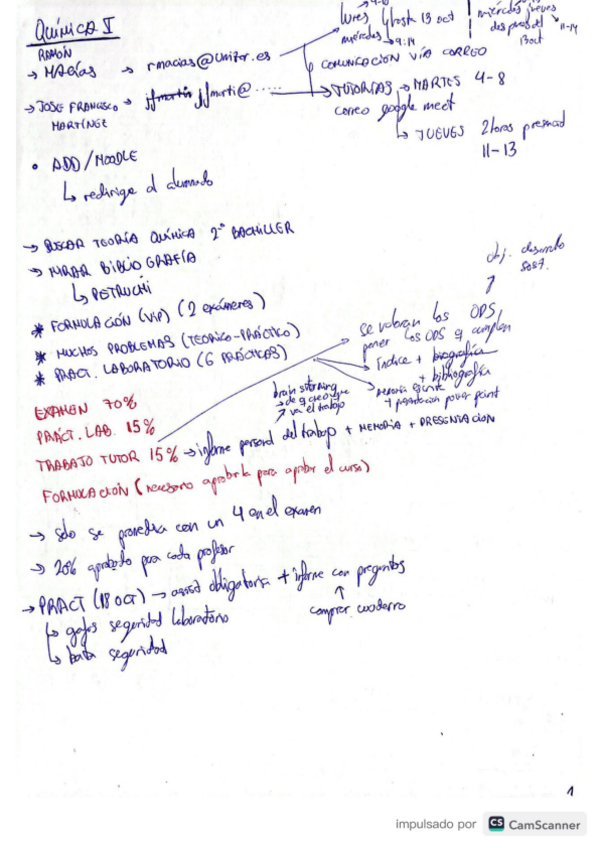 QUÍMICA I
RAMÓN
→ MACÍAS → rmacias@unizar.es
lunes hasta 13 oct
miércoles → 9:14
miércoles jueves
después del
13 oct 11-14
COMUNICACIÓN VÍA CORREO
→ JOSE FRANCISCO → jjmarti@.....
MARTÍNEZ
→ TUTORÍAS → MARTES 4-8
correo google meet
↳ JUEVES 2 horas
11-13
• ADD/MOODLE
↳ redirige al alumnado
→ BUSCAR TEORÍA QUÍMICA 2º BACHILLER
→ MIRAR BIBLIOGRAFÍA
↳ PETRUCHI
* FORMULACIÓN (VIP) (2 exámenes)
* MUCHOS PROBLEMAS (TEORICO-PRÁCTICO)
* PRACT. LABORATORIO (6 PRÁCTICAS)
obj. desarrollo
sost.
se valoran los ODS
poner los ODS q cumplen
→ Índice + biografía
+ bibliografía
→ memoria escrita
+ presentacion power point
brain storming
→ de q creo que
va el trabajo
EXAMEN 70%
PRÁCT. LAB. 15%
TRABAJO TUTOR 15% → informe personal del trabajo + MEMORIA + PRESENTACION
FORMULACIÓN (necesario aprobarla para aprobar el curso)
→ solo se promedia con un 4 en el examen
→ 20% aprobado para cada profesor
→ PRACT (18 OCT) → asist obligatoria + informe con preguntas
↑
comprar cuaderno
↳ gafas seguridad laboratorio
↳ bata seguridad
1
impulsado por CS CamScanner